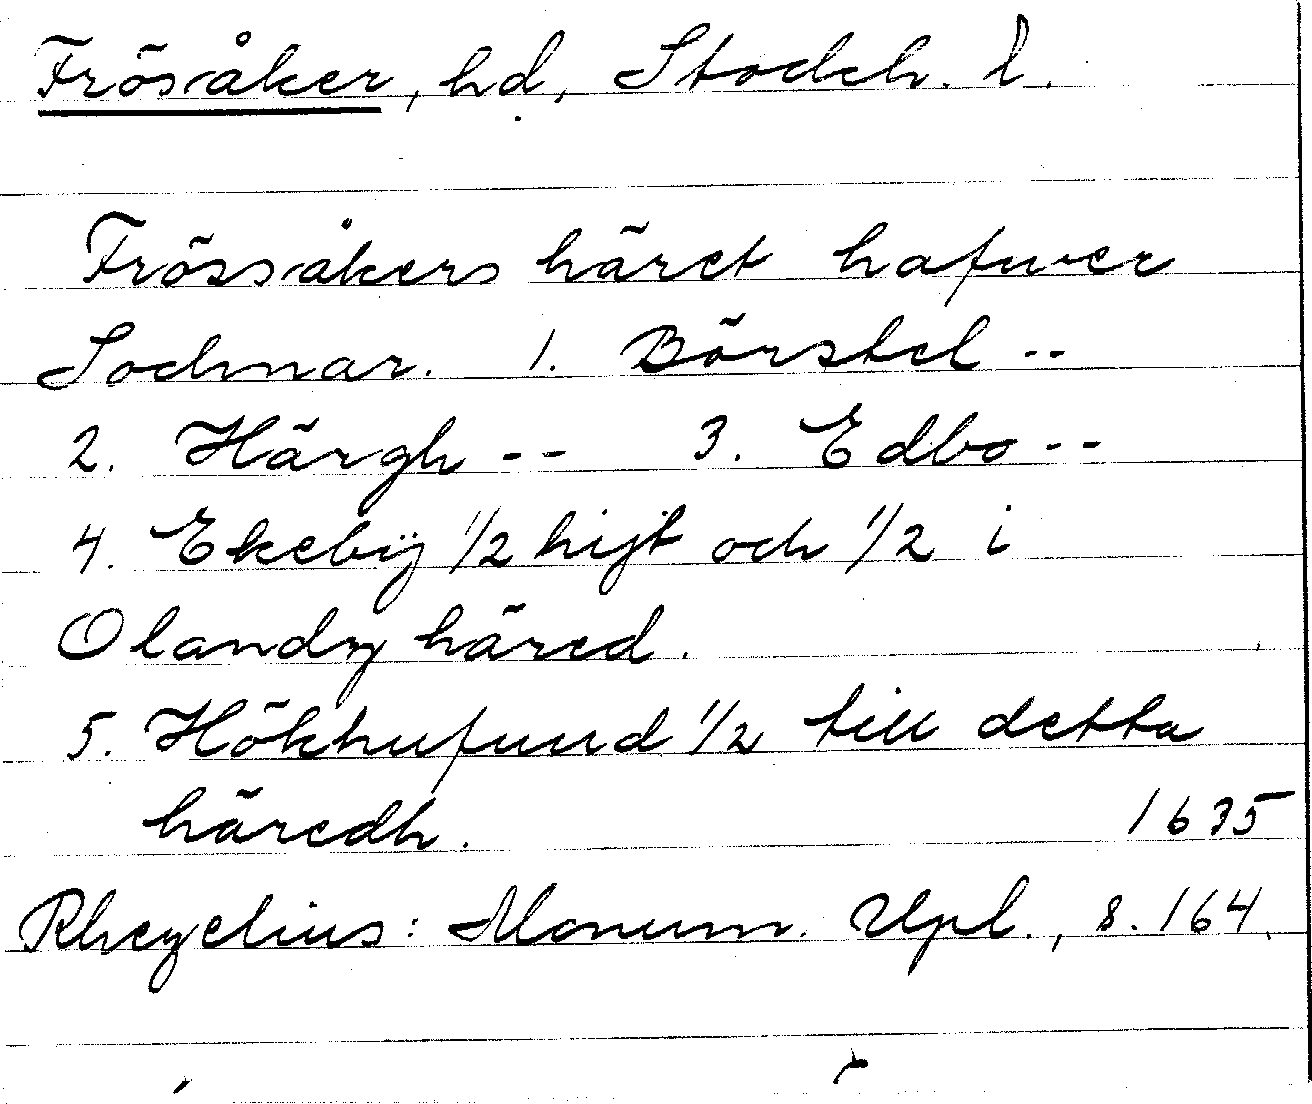 Frösåker, hd, Stockh. l.
Frössåkers häret hafwer
Sochnar. 1. Börstel --
2. Härgh -- 3. Edbo --
4. Ekebÿ 1/2 hijt och 1/2 i
Olandz häred.
5. Hökhufuud 1/2 till detta
häredh. 1635
Rhezelius: Monum. Upl., s. 164.